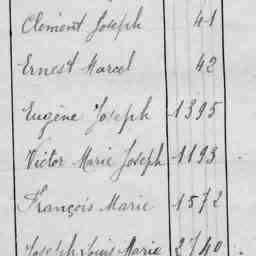 Clément Joseph 41
Ernest Marcel 42
Eugène Joseph 1395
Victor Marie Joseph 1193
François Marie 1572
Joseph Louis Marie 2740